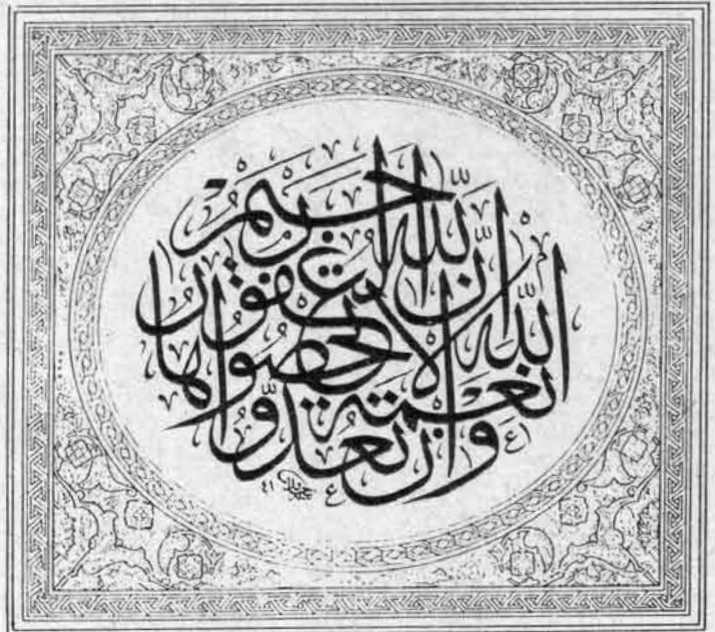 وَاِنْ تَعُدُّوا
نِعْمَةَ اللّٰهِ لَا تُحْصُوهَا
اِنَّ اللّٰهَ لَغَفُورٌ
رَحِيمٌ
٤١